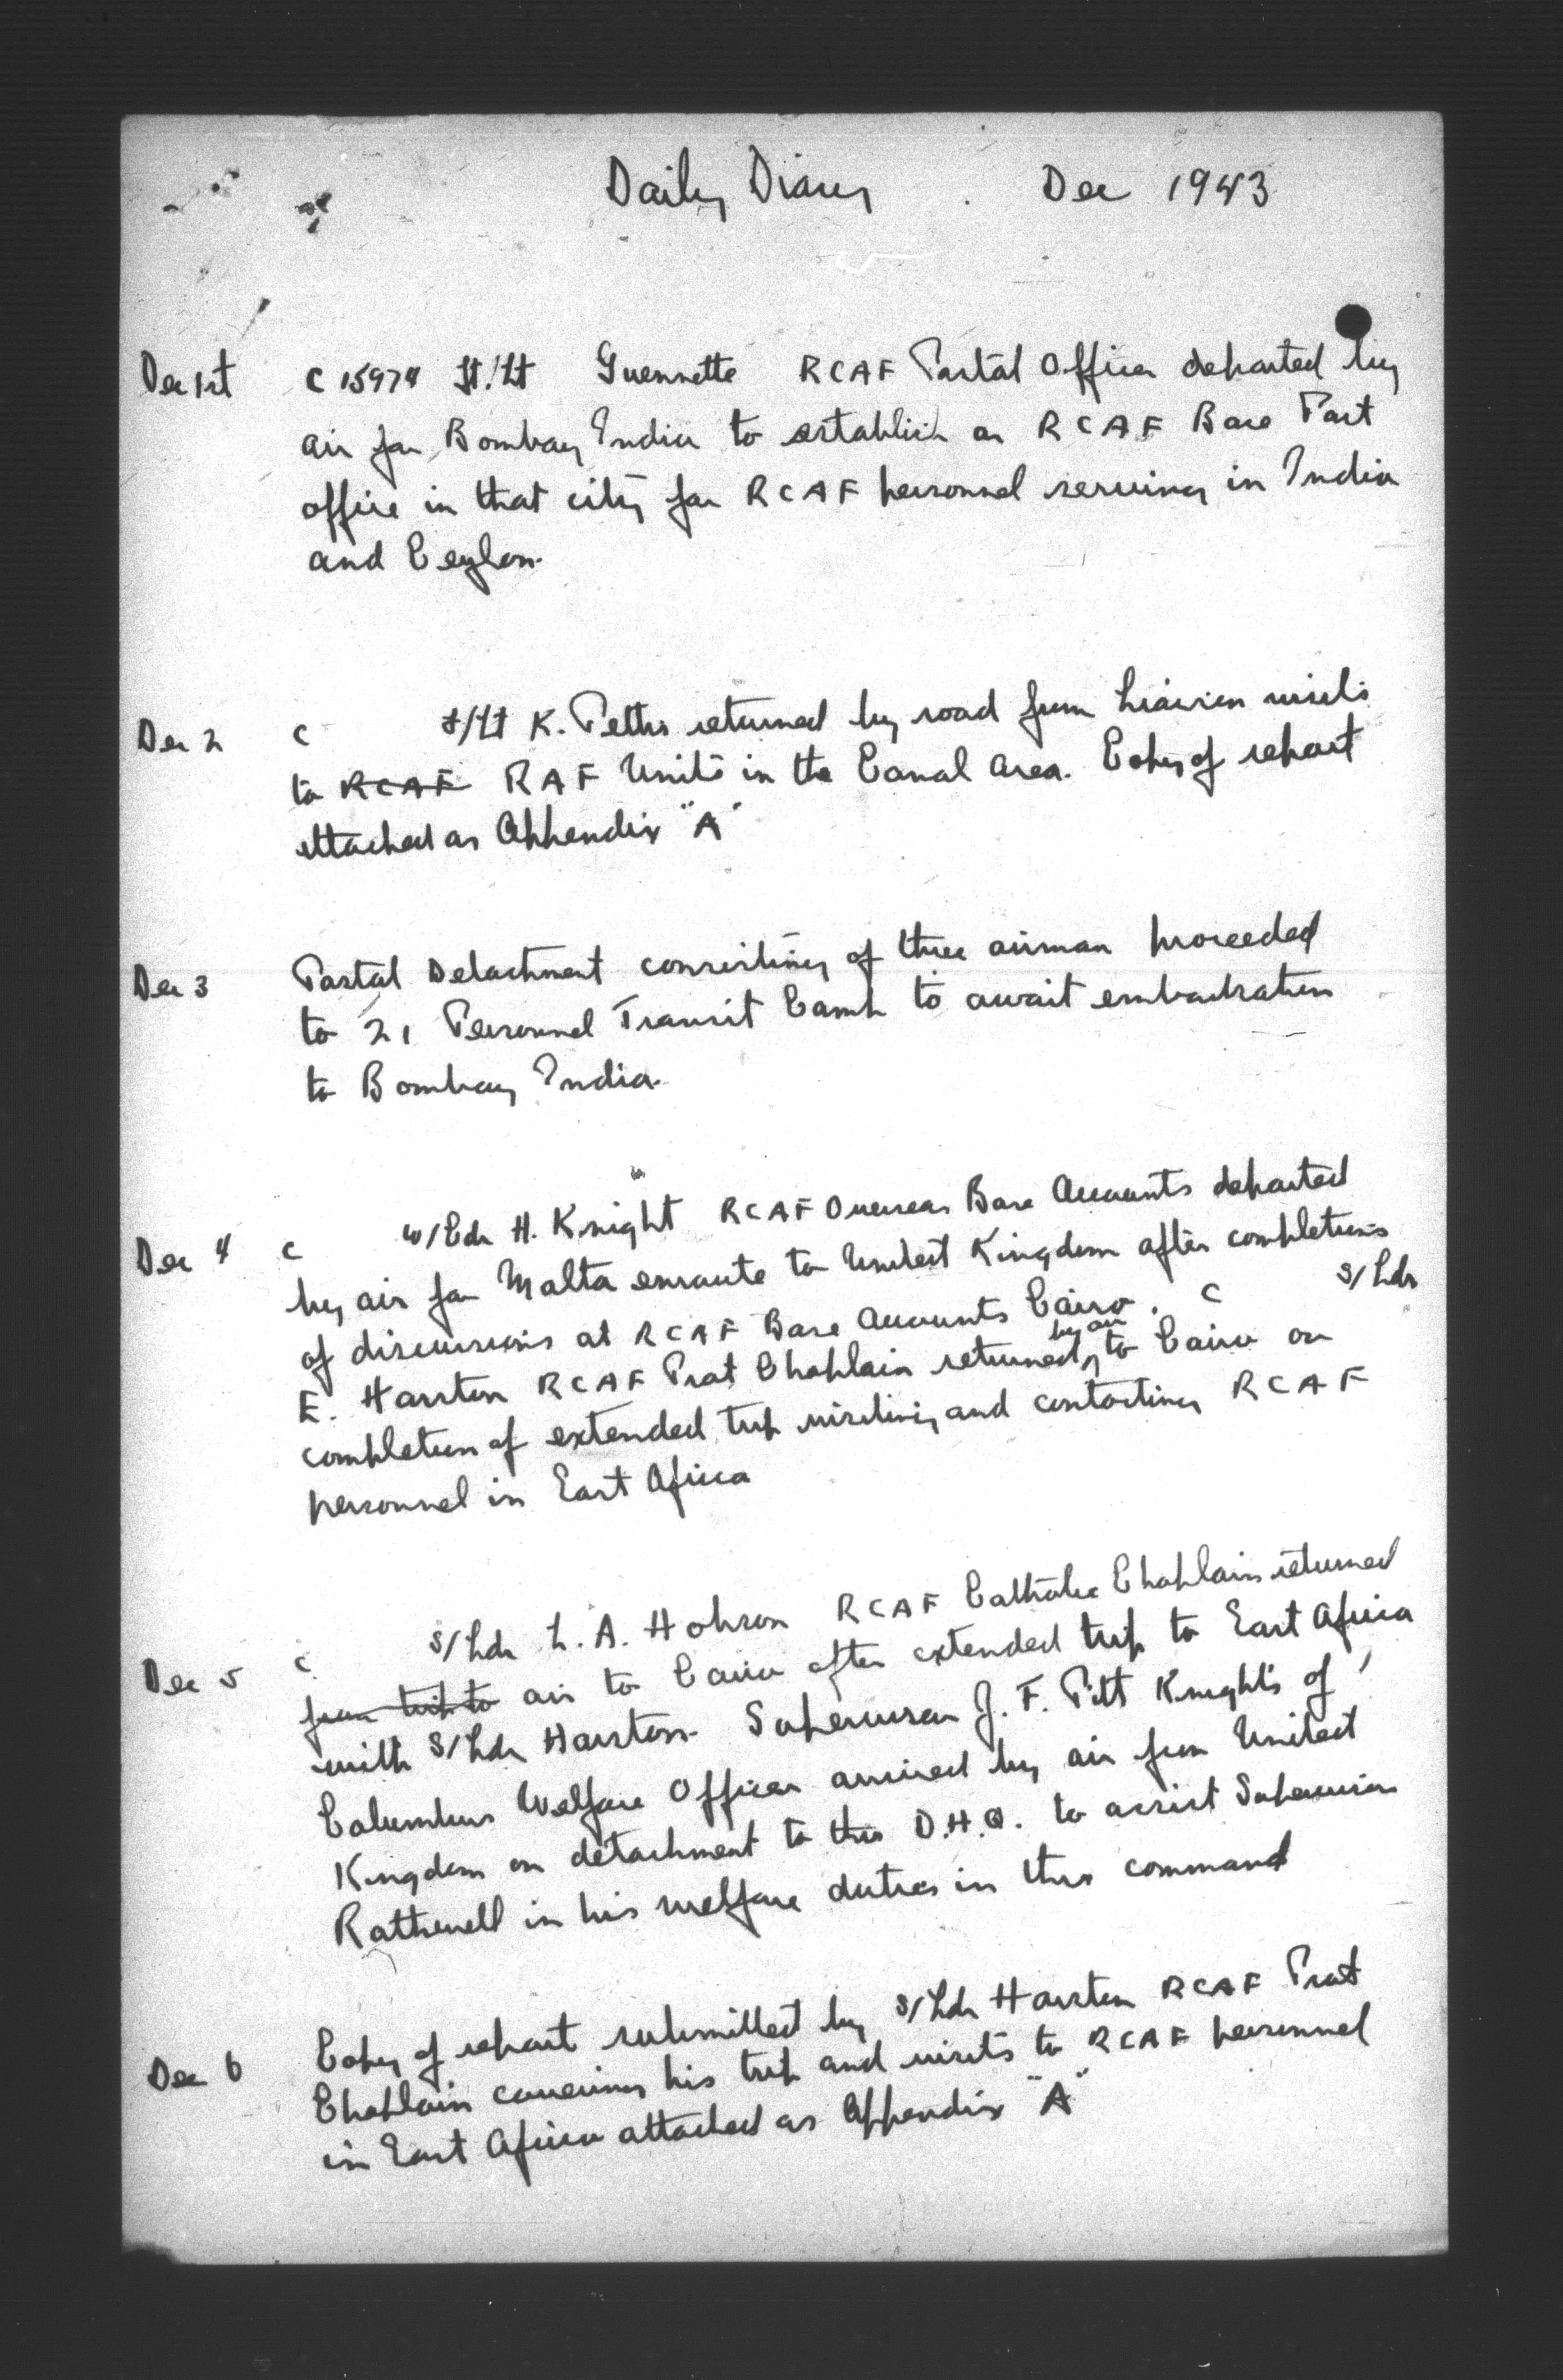 Daily Diary . Dec 1943
Dec 1st C 15974 Ft./Lt Guennette RCAF Postal Officer departed by
air for Bombay India to establish an RCAF Base Post
office in that city for RCAF personnel serving in India
and Ceylon.
Dec 2 C F/Lt K. Petts returned by road from Liaison visits
to RCAF RAF Units in the Canal Area. Copy of report
attached as Appendix "A"
Dec 3 Postal Detachment consisting of three airman proceeded
to 21 Personnel Transit Camp to await embarkation
to Bombay India.
Dec 4 C W/Cdr H. Knight RCAF Overseas Base Accounts departed
by air for Malta enroute to United Kingdom after completions
of discussions at RCAF Base Accounts Cairo. C S/Ldr
E. Harston RCAF Prot Chaplain returned by air to Cairo on
completion of extended trip visiting and contacting RCAF
personnel in East Africa
Dec 5 C S/Ldr L. A. Hobson RCAF Catholic Chaplain returned
from trip to air to Cairo after extended trip to East Africa
with S/Ldr Harston. Supervisor J. F. Pitt Knights of
Columbus Welfare Officer arrived by air from United
Kingdom on detachment to this D.H.Q. to assist Supervisor
Rathwell in his welfare duties in this command
Dec 6 Copy of report submitted by S/Ldr Harston RCAF Prot
Chaplain covering his trip and visits to RCAF personnel
in East Africa attached as Appendix "A"